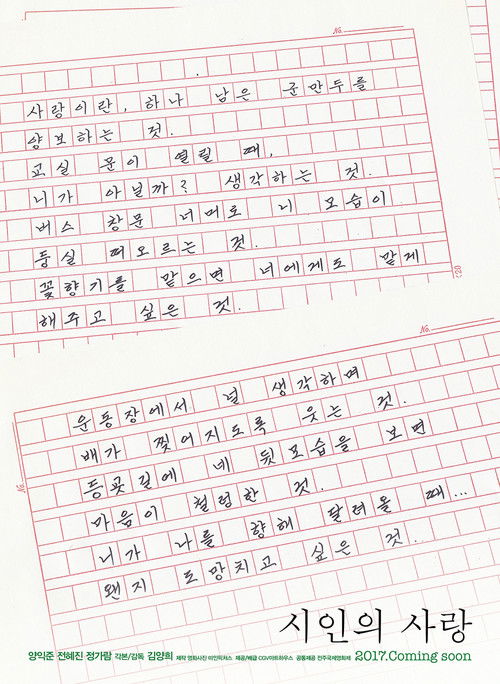 No.
사랑이란, 하나 남은 군만두를
양보하는 것.
교실 문이 열릴 때,
니가 아닐까? 생각하는 것.
버스 창문 너머로 니 모습이
둥실 떠오르는 것.
꽃향기를 맡으면 너에게도 맡게
해주고 싶은 것.
No.
No.
운동장에서 널 생각하며
배가 찢어지도록 웃는 것.
등굣길에 네 뒷모습을 보면
마음이 철렁한 것.
니가 나를 향해 달려올 때...
왠지 도망치고 싶은 것.
시인의 사랑
양익준 전혜진 정가람 각본/감독 김양희 제작 영화사진 미인픽쳐스 제공/배급 CGV아트하우스 공동제공 전주국제영화제 2017.Coming soon